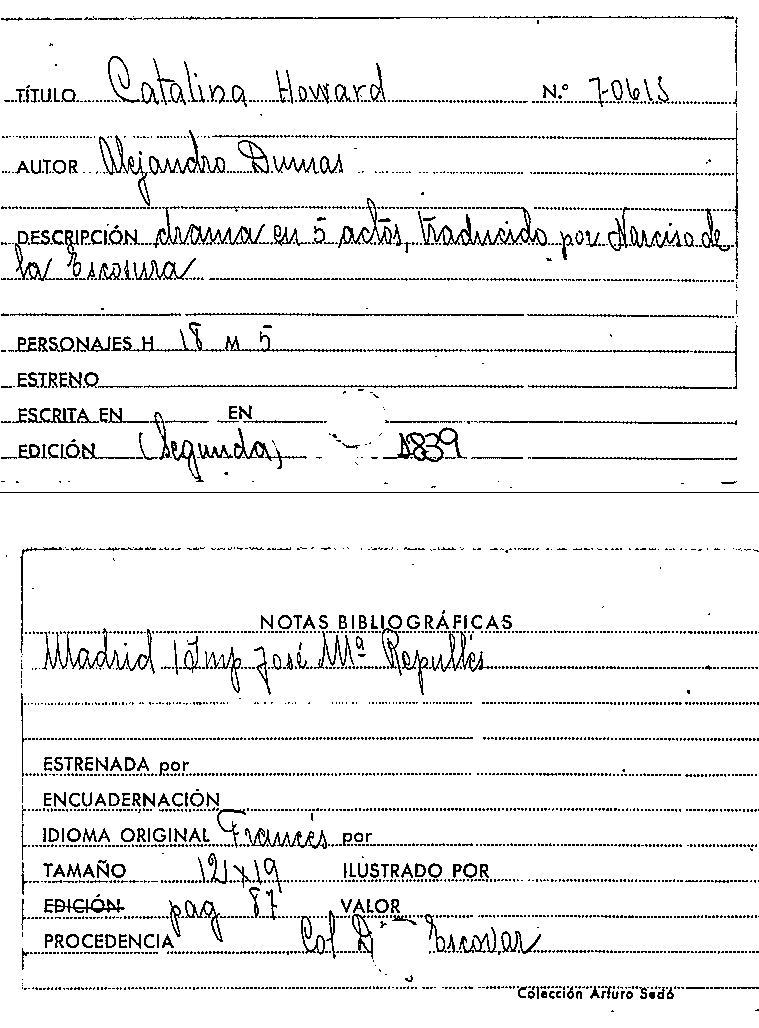 TÍTULO Catalina Howard N.º 70615
AUTOR Alejandro Dumas
DESCRIPCIÓN drama en 5 actos, traducido por Narciso de
la Escosura
PERSONAJES H 18 M 5
ESTRENO
ESCRITA EN EN
EDICIÓN (Segunda) 1839
NOTAS BIBLIOGRÁFICAS
Madrid Imp José Mª Repullés
ESTRENADA por
ENCUADERNACIÓN
IDIOMA ORIGINAL Francés por
TAMAÑO 12x19 ILUSTRADO POR
EDICIÓN pag 87 VALOR
PROCEDENCIA Col Escovar
Colección Arturo Sedó